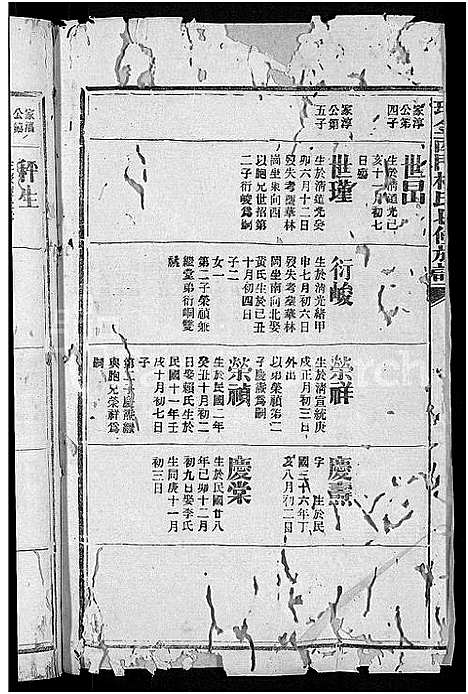 家淳
公第
四子
世昌
生於清道光己
亥十一月初七
日
家淳
公第
五子
世瑾
生於清道光癸
卯六月十二日
歿失考葬華林
崗坐東向西
以胞兄世招第
二子衍峻爲嗣
衍峻
生於清光緒甲
申七月初六日
歿失考葬華林
岡坐南向北娶
黃氏生於己丑
十月初四日
子二
女一
第二子榮禎兼
繼堂弟衍嗣雙
祧
榮祥
生於清宣統庚
戌正月初三日
外出
以弟榮禎第二
子慶燕爲嗣
榮禎
生於民國二年
癸丑十月初二
日娶賴氏生於
民國十一年壬
戌十月初七日
子
與胞兄榮祥爲
嗣
慶燾
字 生於民
國三十六年丁
亥八月初二日
慶棠
生於民國廿八
年己卯十二月
初九日娶李氏
生同庚十一月
初三日
家
公第
秤生